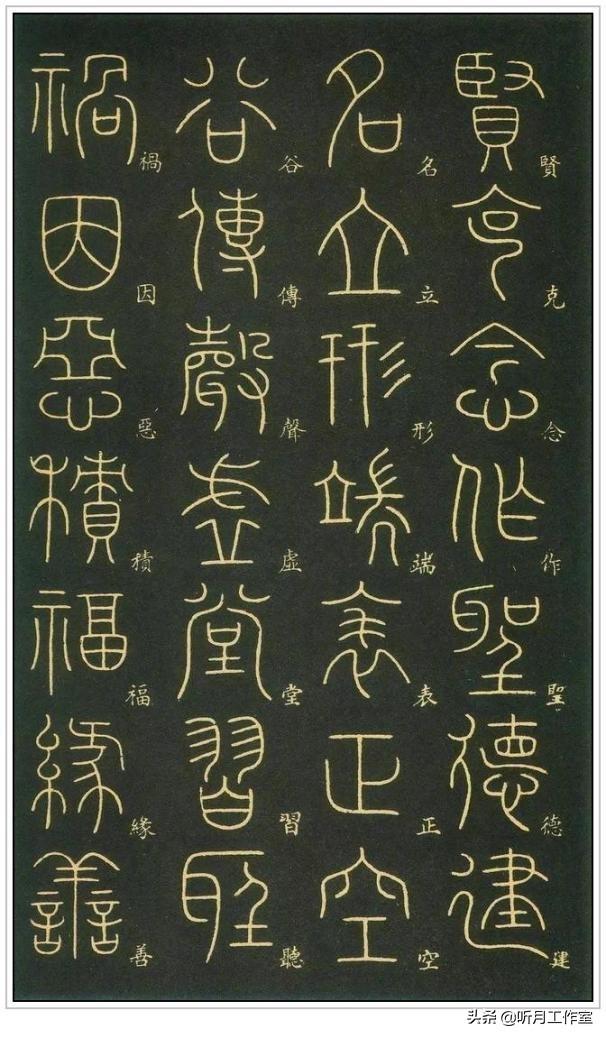 賢克念作聖德建
名立形端表正空
谷傳聲虛堂習聽
禍因惡積福緣善
賢克念作聖德建
名立形端表正空
谷傳聲虛堂習聽
禍因惡積福緣善
头条 @听月工作室